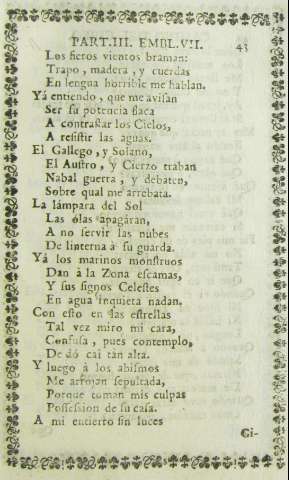 PART.III. EMBL.VII. 43
Los fieros vientos braman:
Trapo, madera, y cuerdas
En lengua horrible me hablan.
Yá entiendo, que me avisan
Ser su potencia flaca
A contrastar los Cielos,
A resistir las aguas.
El Gallego, y Solano,
El Austro, y Cierzo traban
Nabal guerra, y debaten,
Sobre qual me arrebata.
La lámpara del Sol
Las ólas apagáran,
A no servir las nubes
De linterna á su guarda.
Yá los marinos monstruos
Dan á la Zona escamas,
Y sus signos Celestes
En agua inquieta nadan.
Con esto en las estrellas
Tal vez miro mi cara,
Confusa, pues contemplo,
De dó caí tan alta.
Y luego á los abismos
Me arrojan sepultada,
Porque toman mis culpas
Possession de su casa.
A mi entierro sin luces
Gi-